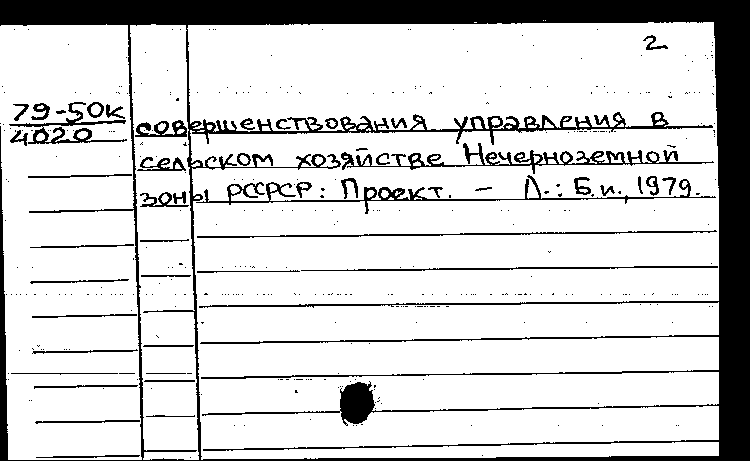 2
79-50к
4020
совершенствования управления в
сельском хозяйстве Нечерноземной
зоны РСФСР: Проект. – Л.: Б.и., 1979.